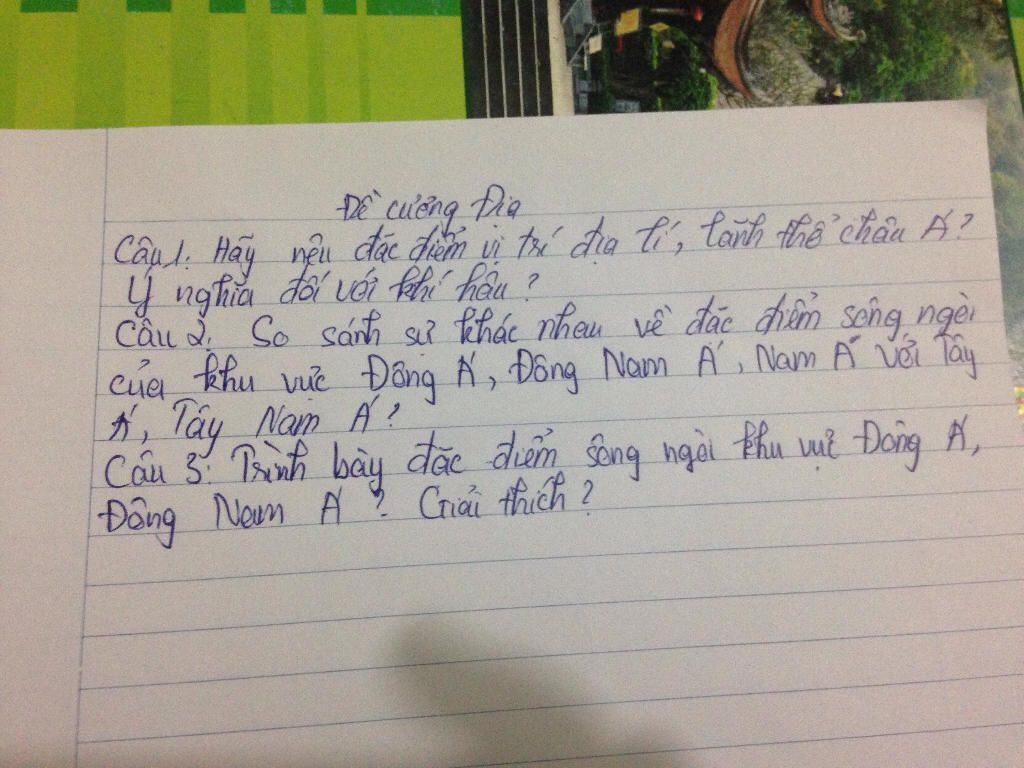 Đề cương Địa
Câu 1: Hãy nêu đặc điểm vị trí địa lí, lãnh thổ châu Á?
Ý nghĩa đối với khí hậu?
Câu 2: So sánh sự khác nhau về đặc điểm sông ngòi
của khu vực Đông Á, Đông Nam Á, Nam Á với Tây
Á, Tây Nam Á?
Câu 3: Trình bày đặc điểm sông ngòi khu vực Đông Á,
Đông Nam Á? Giải thích?